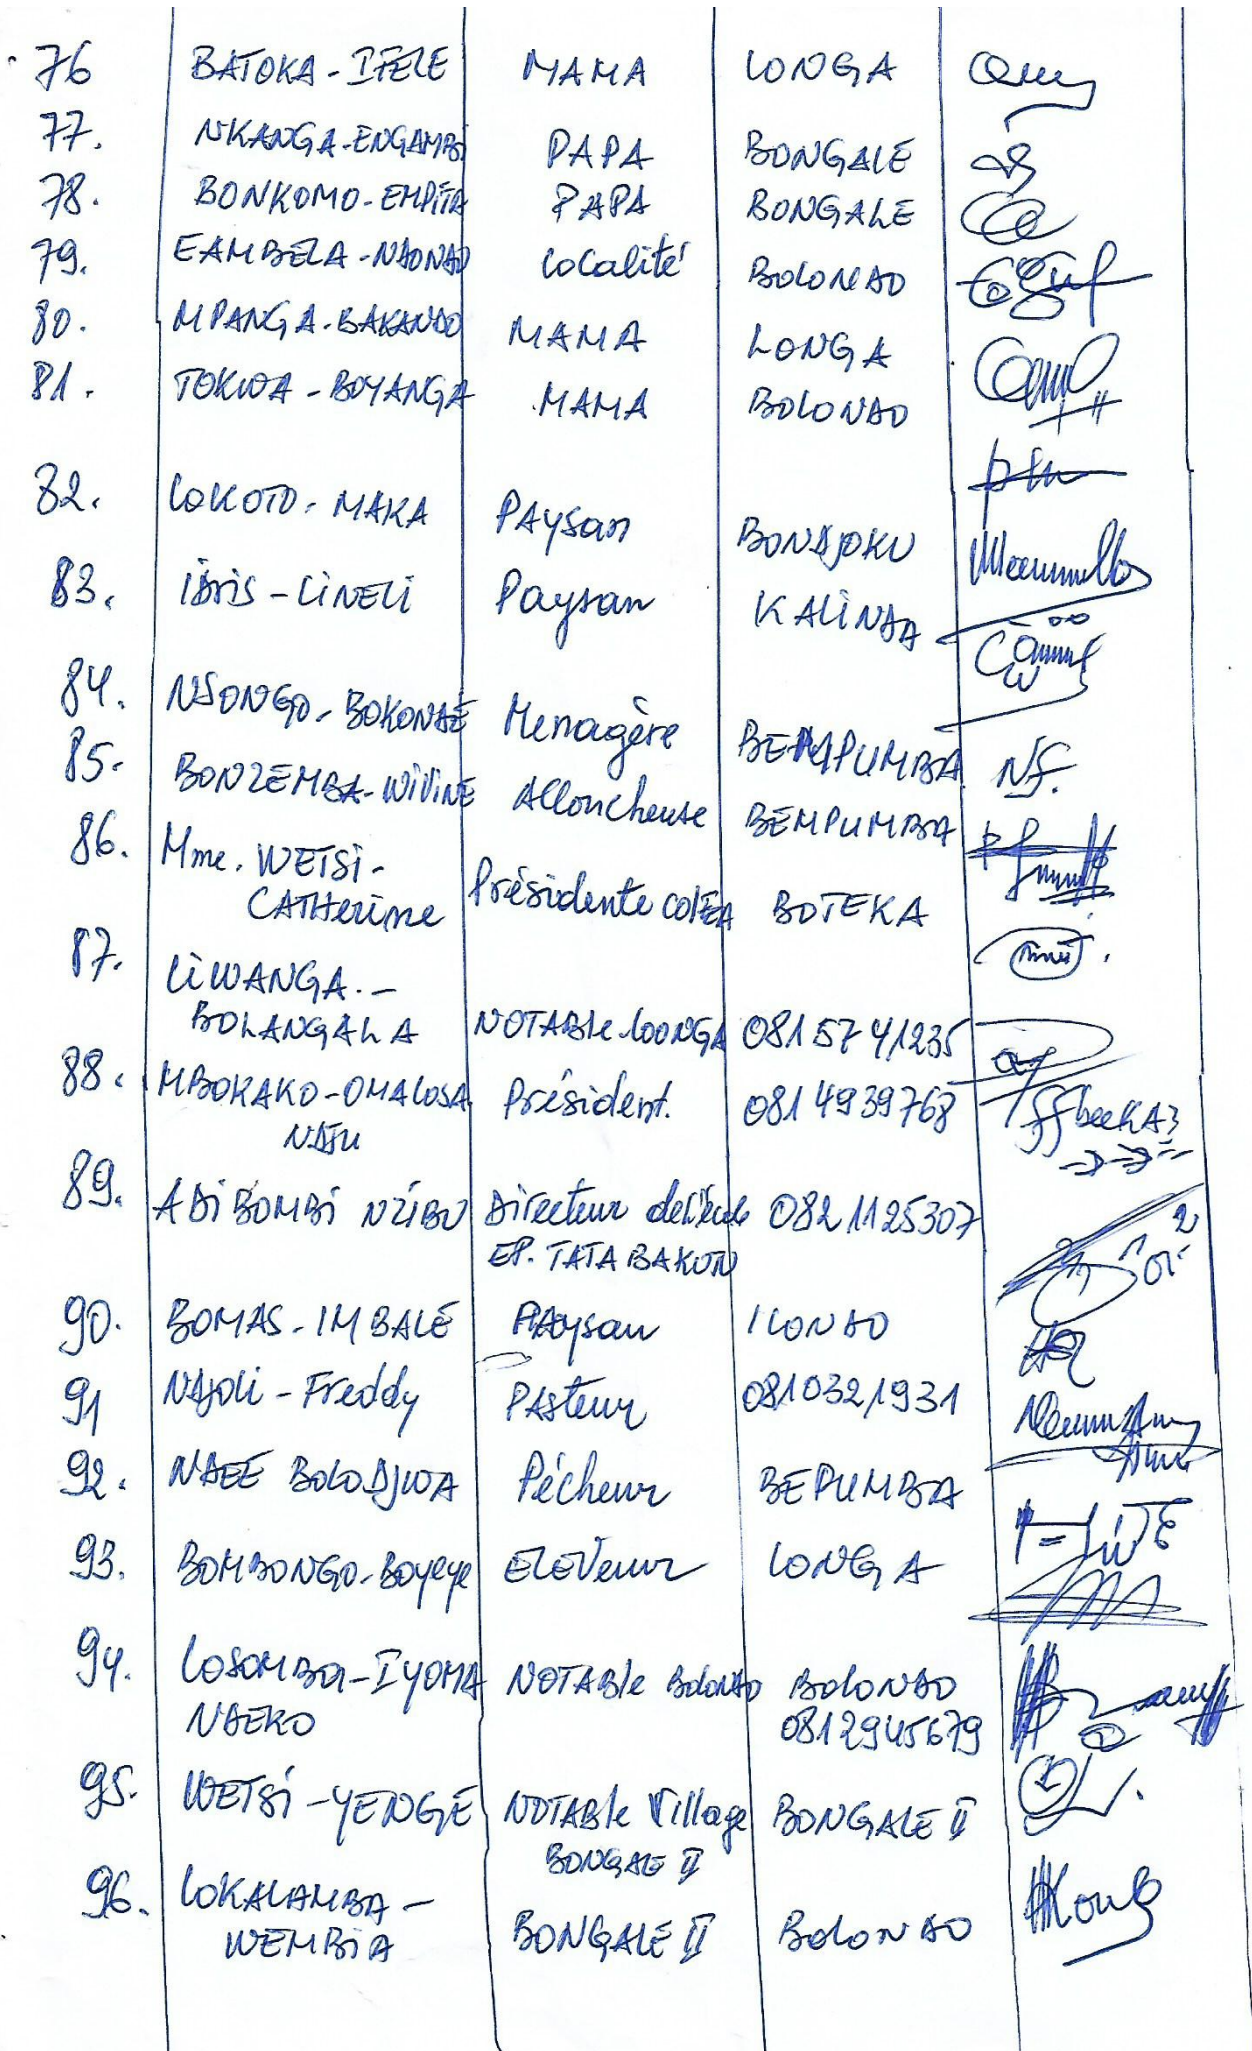 76 BATOKA - IFELE MAMA LONGA
77. NKANGA - ENGAMBI PAPA BONGALE
78. BONKOMO - EMPITA PAPA BONGALE
79. EAMBELA - NDONDO localité BOLONDO
80. MPANGA - BAKANDO MAMA LONGA
81. TOKWA - BOYANGA MAMA BOLONDO
82. LOKOTO - MAKA PAYSan BONDJOKU
83. IBIS - LINELI Paysan KALINDA
84. NSONGO - BOKONDE Menagère BEMPUMBA NS.
85. BONZEMBA - WIVINE Alloucheuse BEMPUMBA
86. Mme. WETSI -
CATHerine Présidente BOTEKA
87. LIWANGA. -
BOLANGALA NOTABLe LOONGA 0815741235
88. MBOKAKO - OMALOSA Président. 0814939768
NDJU
89. ADIBOMBI NZIBU Directeur de l'école 0821125307
EP. TATA BAKON
90. BOMAS - IMBALE PAysan ILONDO
91 NDJOLI - Freddy PASteur 0810321931
92. NDEE BOLODJWA Pécheur BEPUMBA
93. BOMBONGO - Boyeye ELEVeur LONGA
94. LOSOMBA - IYOMA NOTABLe BOLONDO BOLONDO
NDEKO 0812945679
95. WETSI - YENGE NOTABLe Village BONGALE II
BONGALE II
96. LOKALAMBA -
WEMBIA BONGALE II BOLONDO